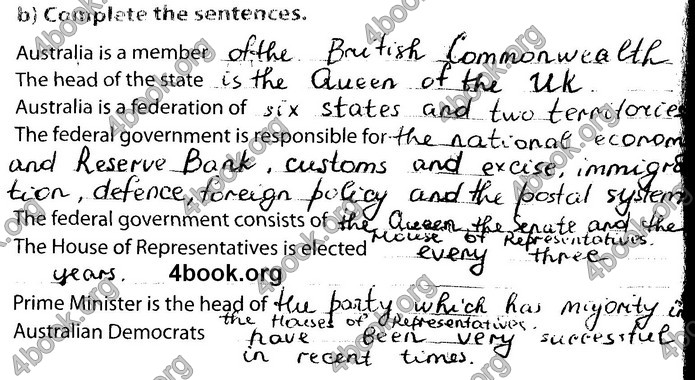 b) Complete the sentences.
Australia is a member of the British Commonwealth
The head of the state is the Queen of the UK.
Australia is a federation of six states and two territories
The federal government is responsible for the national econom
and Reserve Bank, customs and excise, immigra
tion, defence, foreign policy and the postal system
The federal government consists of the Queen, the Senate and the
House of Representatives.
The House of Representatives is elected every three
years. 4book.org
Prime Minister is the head of the party which has majority in
the Houses of Representatives.
Australian Democrats have been very successful
in recent times.